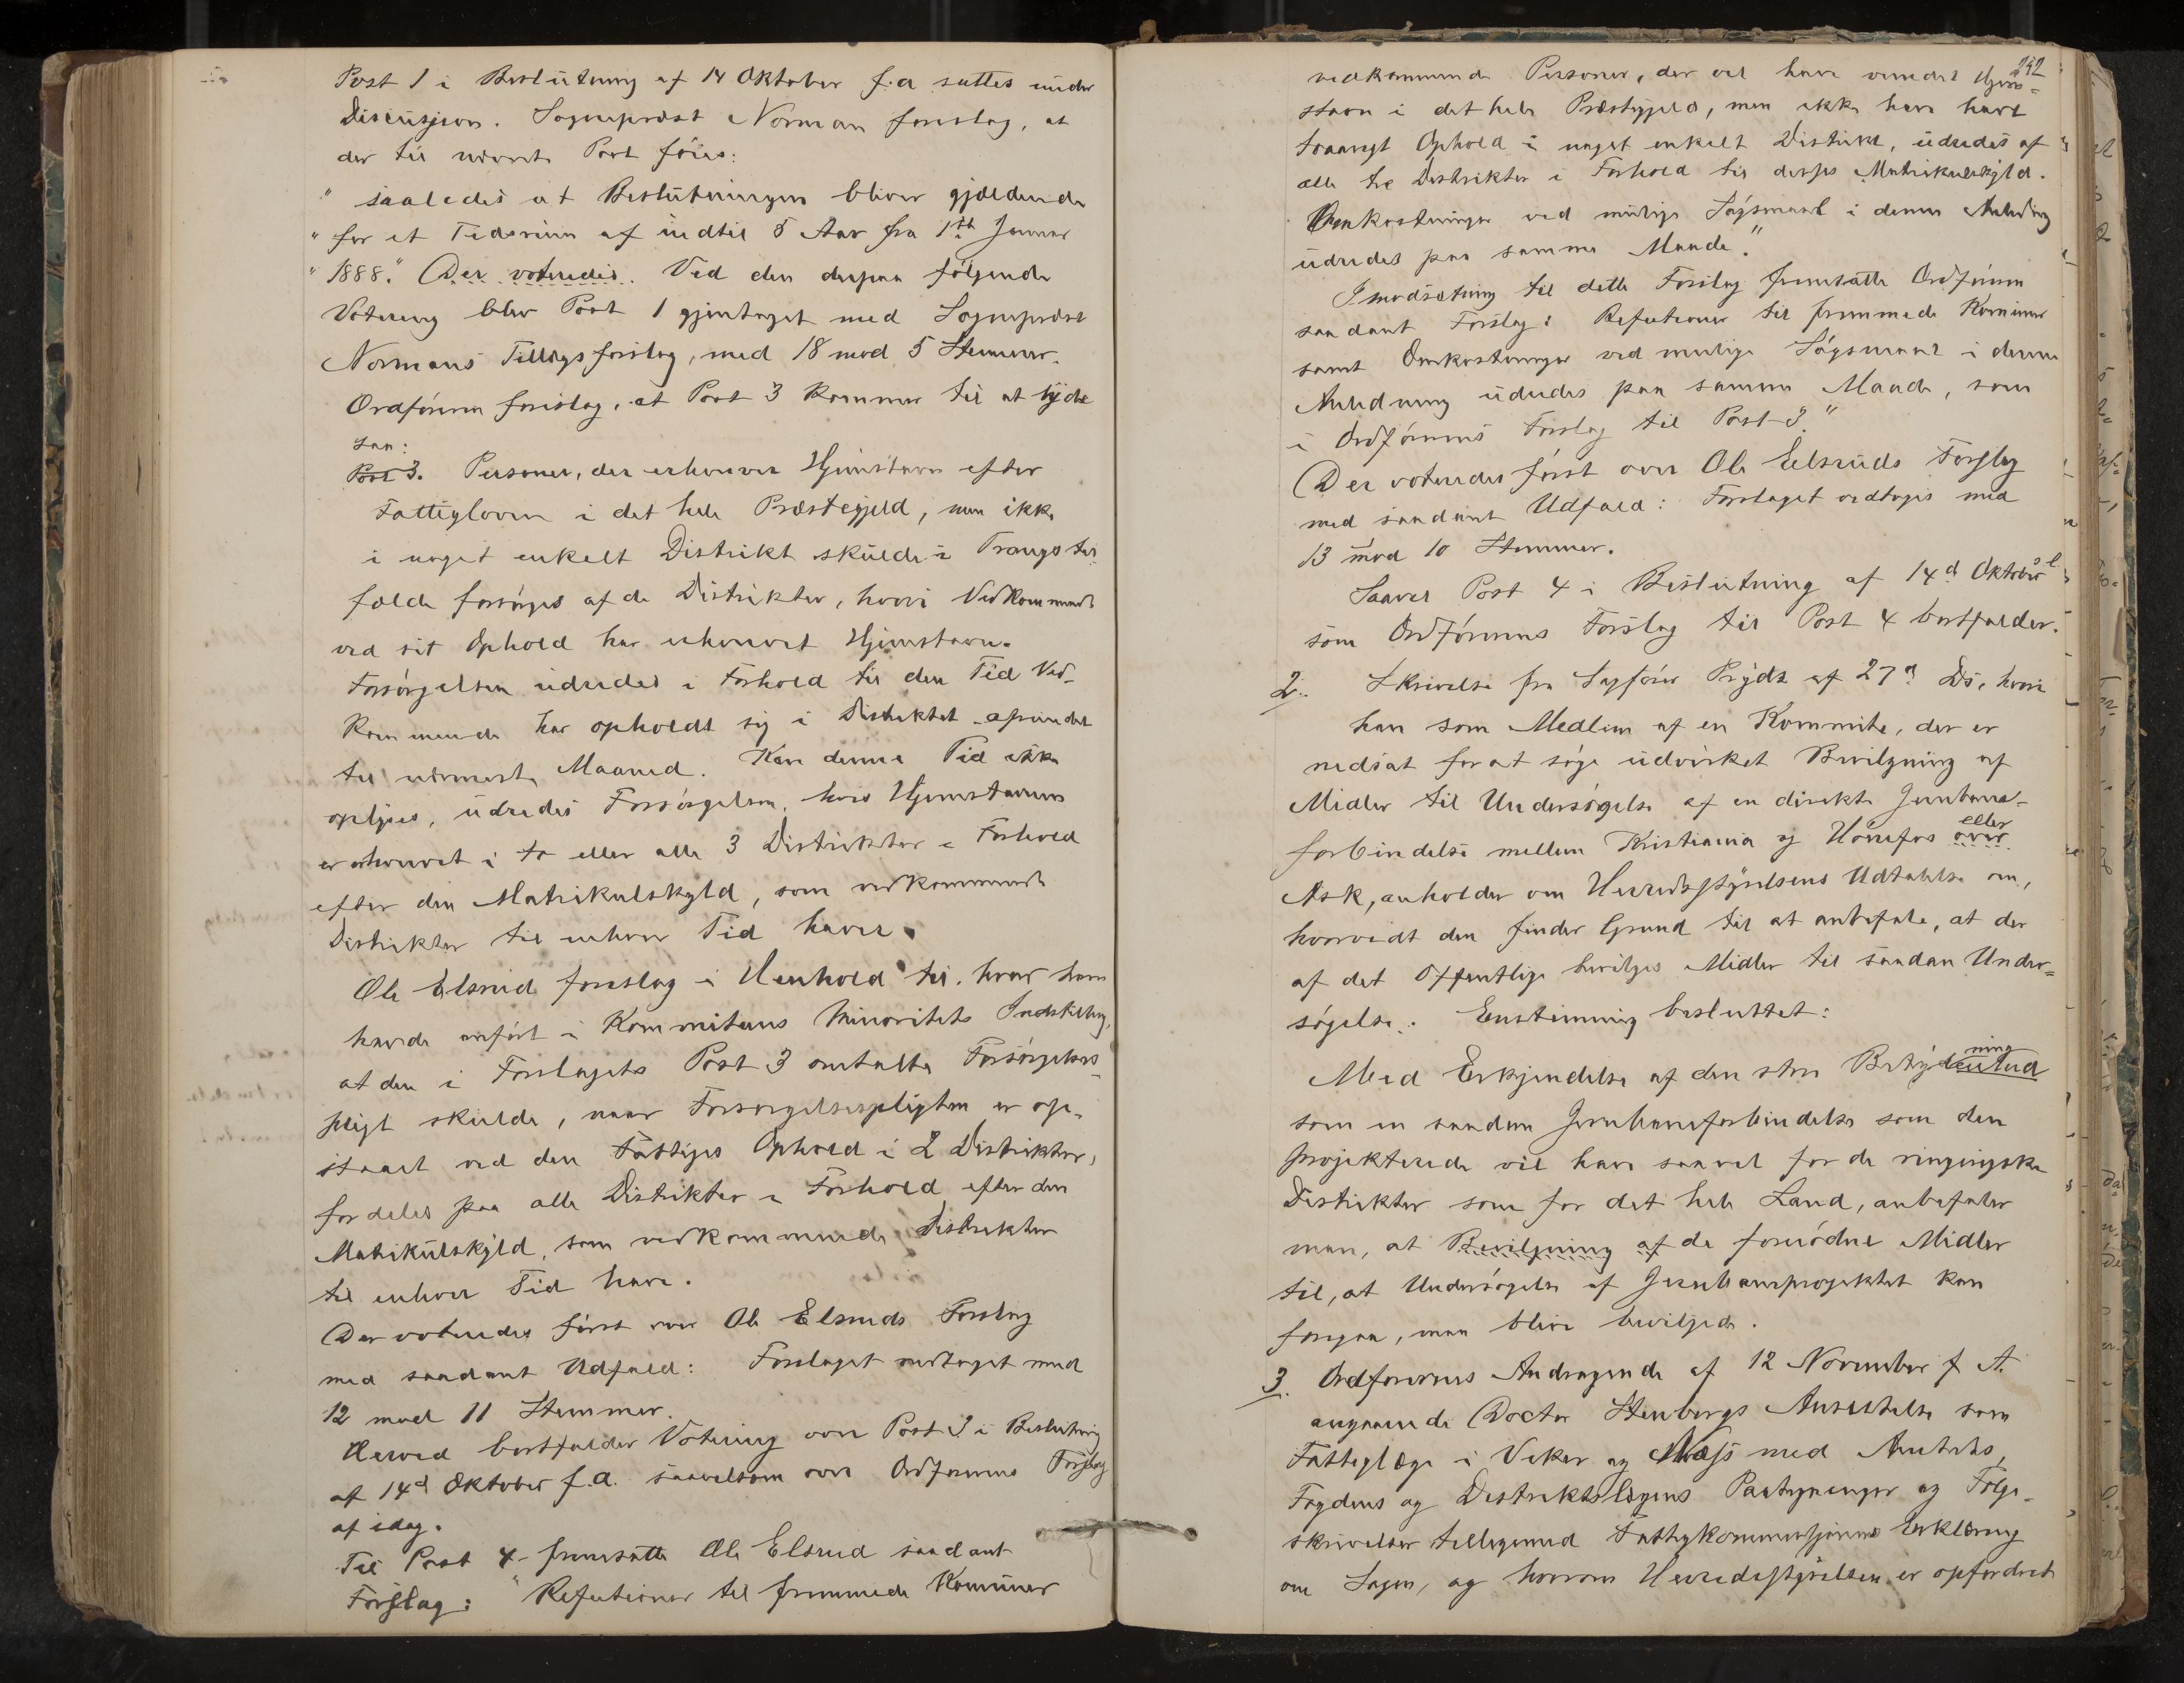 Post 1 i Beslutning af 14 Oktober f.a sattes under
Discusjion. Sogneprest Norman foreslog, at
der til nævnte Post föies:
" saaledes at Beslutningen bliver gjældende
" for et Tidsrum af indtil 5 Aar fra 1ste Januar
" 1888." Der voteredes. Ved den derpaa fölgende
Votering blev Post 1 gjentaget med Sogneprest
Normans Tillægsforslag, med 18 mod 5 Stemmer.
Ordföreren foreslog, at Post 3 kommer til at lyde
saa:
Post 3. Personer, der erhverver Hjemstavn efter
Fattigloven i det hele Præstegjeld, men ikke
i noget enkelt Distrikt skulde i Trangstil-
fælde forsörges af de Distrikter, hvori Vedkommende
ved sit Ophold har erhvervet Hjemstavn.
Forsörgelsen udredes i Forhold til den Tid Ved-
kommende har opholdt sig i Distriktet afrundet
til nærmeste Maaned. Kan denne Tid ikke
oplyses, udredes Forsörgelsen, hvis Hjemstavnen
er erhvervet i to eller alle 3 Distrikter i Forhold
efter den Matrikulskyld, som vedkommende
Distrikter til enhver Tid haver.
Ole Elsrud foreslog i Henhold til hvad han
havde anfört i Kommiteens Minoritets Indstilling,
at den i Forslagets Post 3 omtalte Forsörgelses-
pligt skulde, naar Forsorgelsespligten er op-
staaet ved den Fattiges Ophold i 2 Distrikter,
fordeles paa alle Distrikter i Forhold efter den
Matrikulskyld, som vedkommende Distrikter
til enhver Tid have.
Der voteredes först over Ole Elsruds Forslag
med saadant Udfald: Forslaget vedtaget med
12 mod 11 Stemmer.
Herved bortfalder Votering over Post 3 i Beslutning
af 14d Oktober f.a. saavelsom over Ordförerens Forslag
af idag.
Til Post 4 fremsatte Ole Elsrud saadant
Forslag: "Refutioner til fremmede Kommuner
242
vedkommende Personer, der vel have vundet Hjem-
stavn i det hele Præstegjeld, men ikke have havt
toaarigt Ophold i noget enkelt Distrikt, udredes af
alle tre Distrikter i Forhold til disses Matrikulskyld.
Omkostninger ved mulige Sögsmaal i denne Anledning
udredes paa samme Maade."
I modsætning til dette Forslag fremsatte Ordföreren
saadant Forslag: Refutioner til fremmede Kommuner
samt Omkostninger ved mulige Sögsmaal i denne
Anledning udredes paa samme Maade, som
i Ordförerens Forslag til Post 3."
Der voteredes först over Ole Elsruds Forslag
med saadant Udfald: Forslaget vedtoges med
13 mod 10 Stemmer.
Saavel Post 4 i Beslutning af 14d Oktober s.l
som Ordförerens Forslag til Post 4 bortfalder.
2. Skrivelse fra Sagförer Prydz af 27d Ds, hvori
han som Medlem af en Kommite, der er
nedsat for at söge udvirket Bevilgning af
Midler til Undersögelse af en direkte Jernbane-
forbindelse mellem Kristiania og Hönefos over eller
Ask, anholder om Herredsstyrelsens Udtalelse om,
hvorvidt den finder Grund til at anbefale, at der
af det Offentlige bevilges Midler til saadan Under-
sögelse. Enstemmig besluttet:
Med Erkjendelse af den store Betydning
som en saadan Jernbaneforbindelse som den
projekterede vil have saavel for de ringerigske
Distrikter som for det hele Land, anbefaler
man, at Bevilgning af de fornödne Midler
til, at Undersögelse af Jernbaneprojektet kan
foregaa, maa blive bevilget.
3. Ordförerens Andragende af 12 November f A.
angaaende Doctor Stenbergs Ansettelse som
Fattiglæge i Viker og Næss med Amtets,
Fogdens og Distriktslægens Paategninger og Fölge-
skrivelser tilligemed Fattigkommisjionens Erklæring
om Sagen, og hvorom Herredsstyrelsen er opfordret